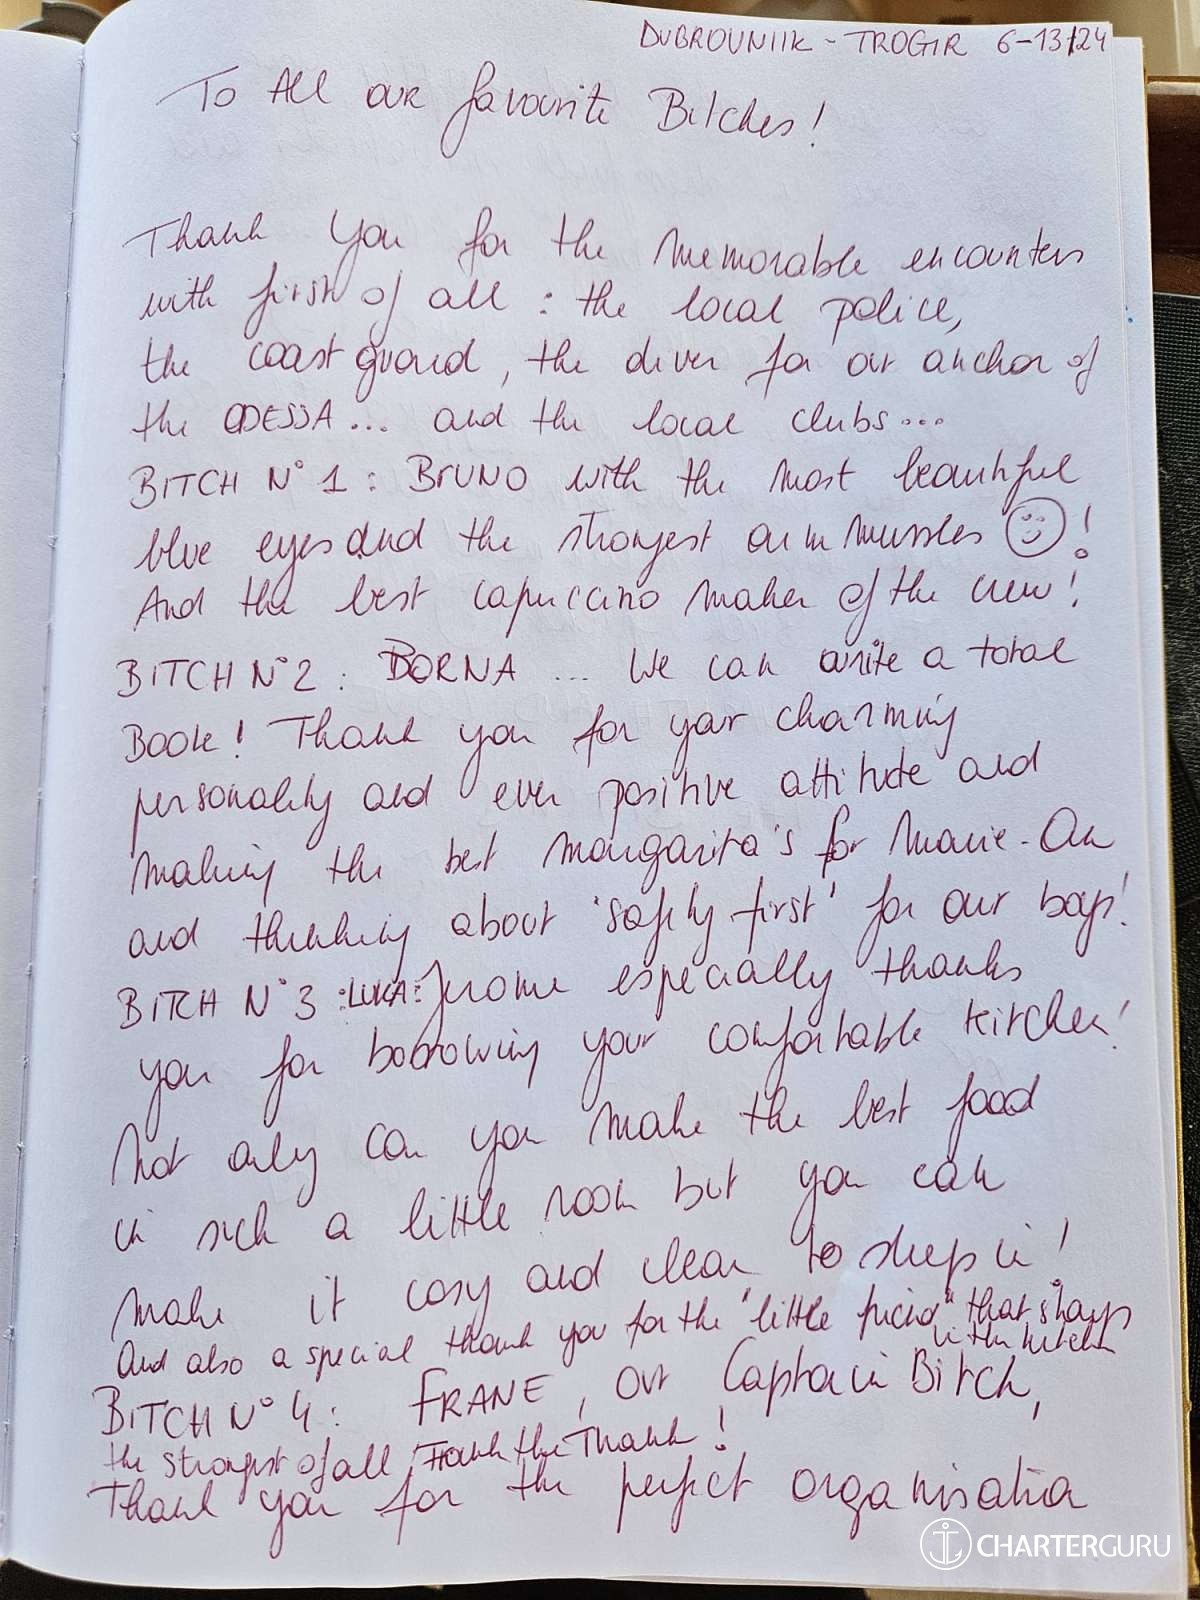 DUBROUNIIK - TROGIR 6-13/24
To All our favourite Bitches!
Thank you for the memorable encounters
with first of all : the local police,
the coast guard, the diver for our anchor of
the ODESSA... and the local clubs...
BITCH N° 1 : BRUNO with the most beautiful
blue eyes and the strongest arm mussles !
And the best capuccino maker of the crew!
BITCH N° 2 : BORNA ... We can write a total
Book! Thank you for your charming
personality and ever positive attitude and
making the best margarita's for Marie-An
and thinking about 'safety first' for our boys!
BITCH N° 3 : LUKA : Jerome especially thanks
you for borrowing your comfortable kitchen!
Not only can you make the best food
in such a little room but you can
make it cosy and clean to sleep in!
And also a special thank you for the "little" "that stays
in the kitchen
BITCH N° 4 : FRANE, our Captain Bitch,
the strongest of all, the Thank!
Thank you for the perfect organisation
CHARTERGURU